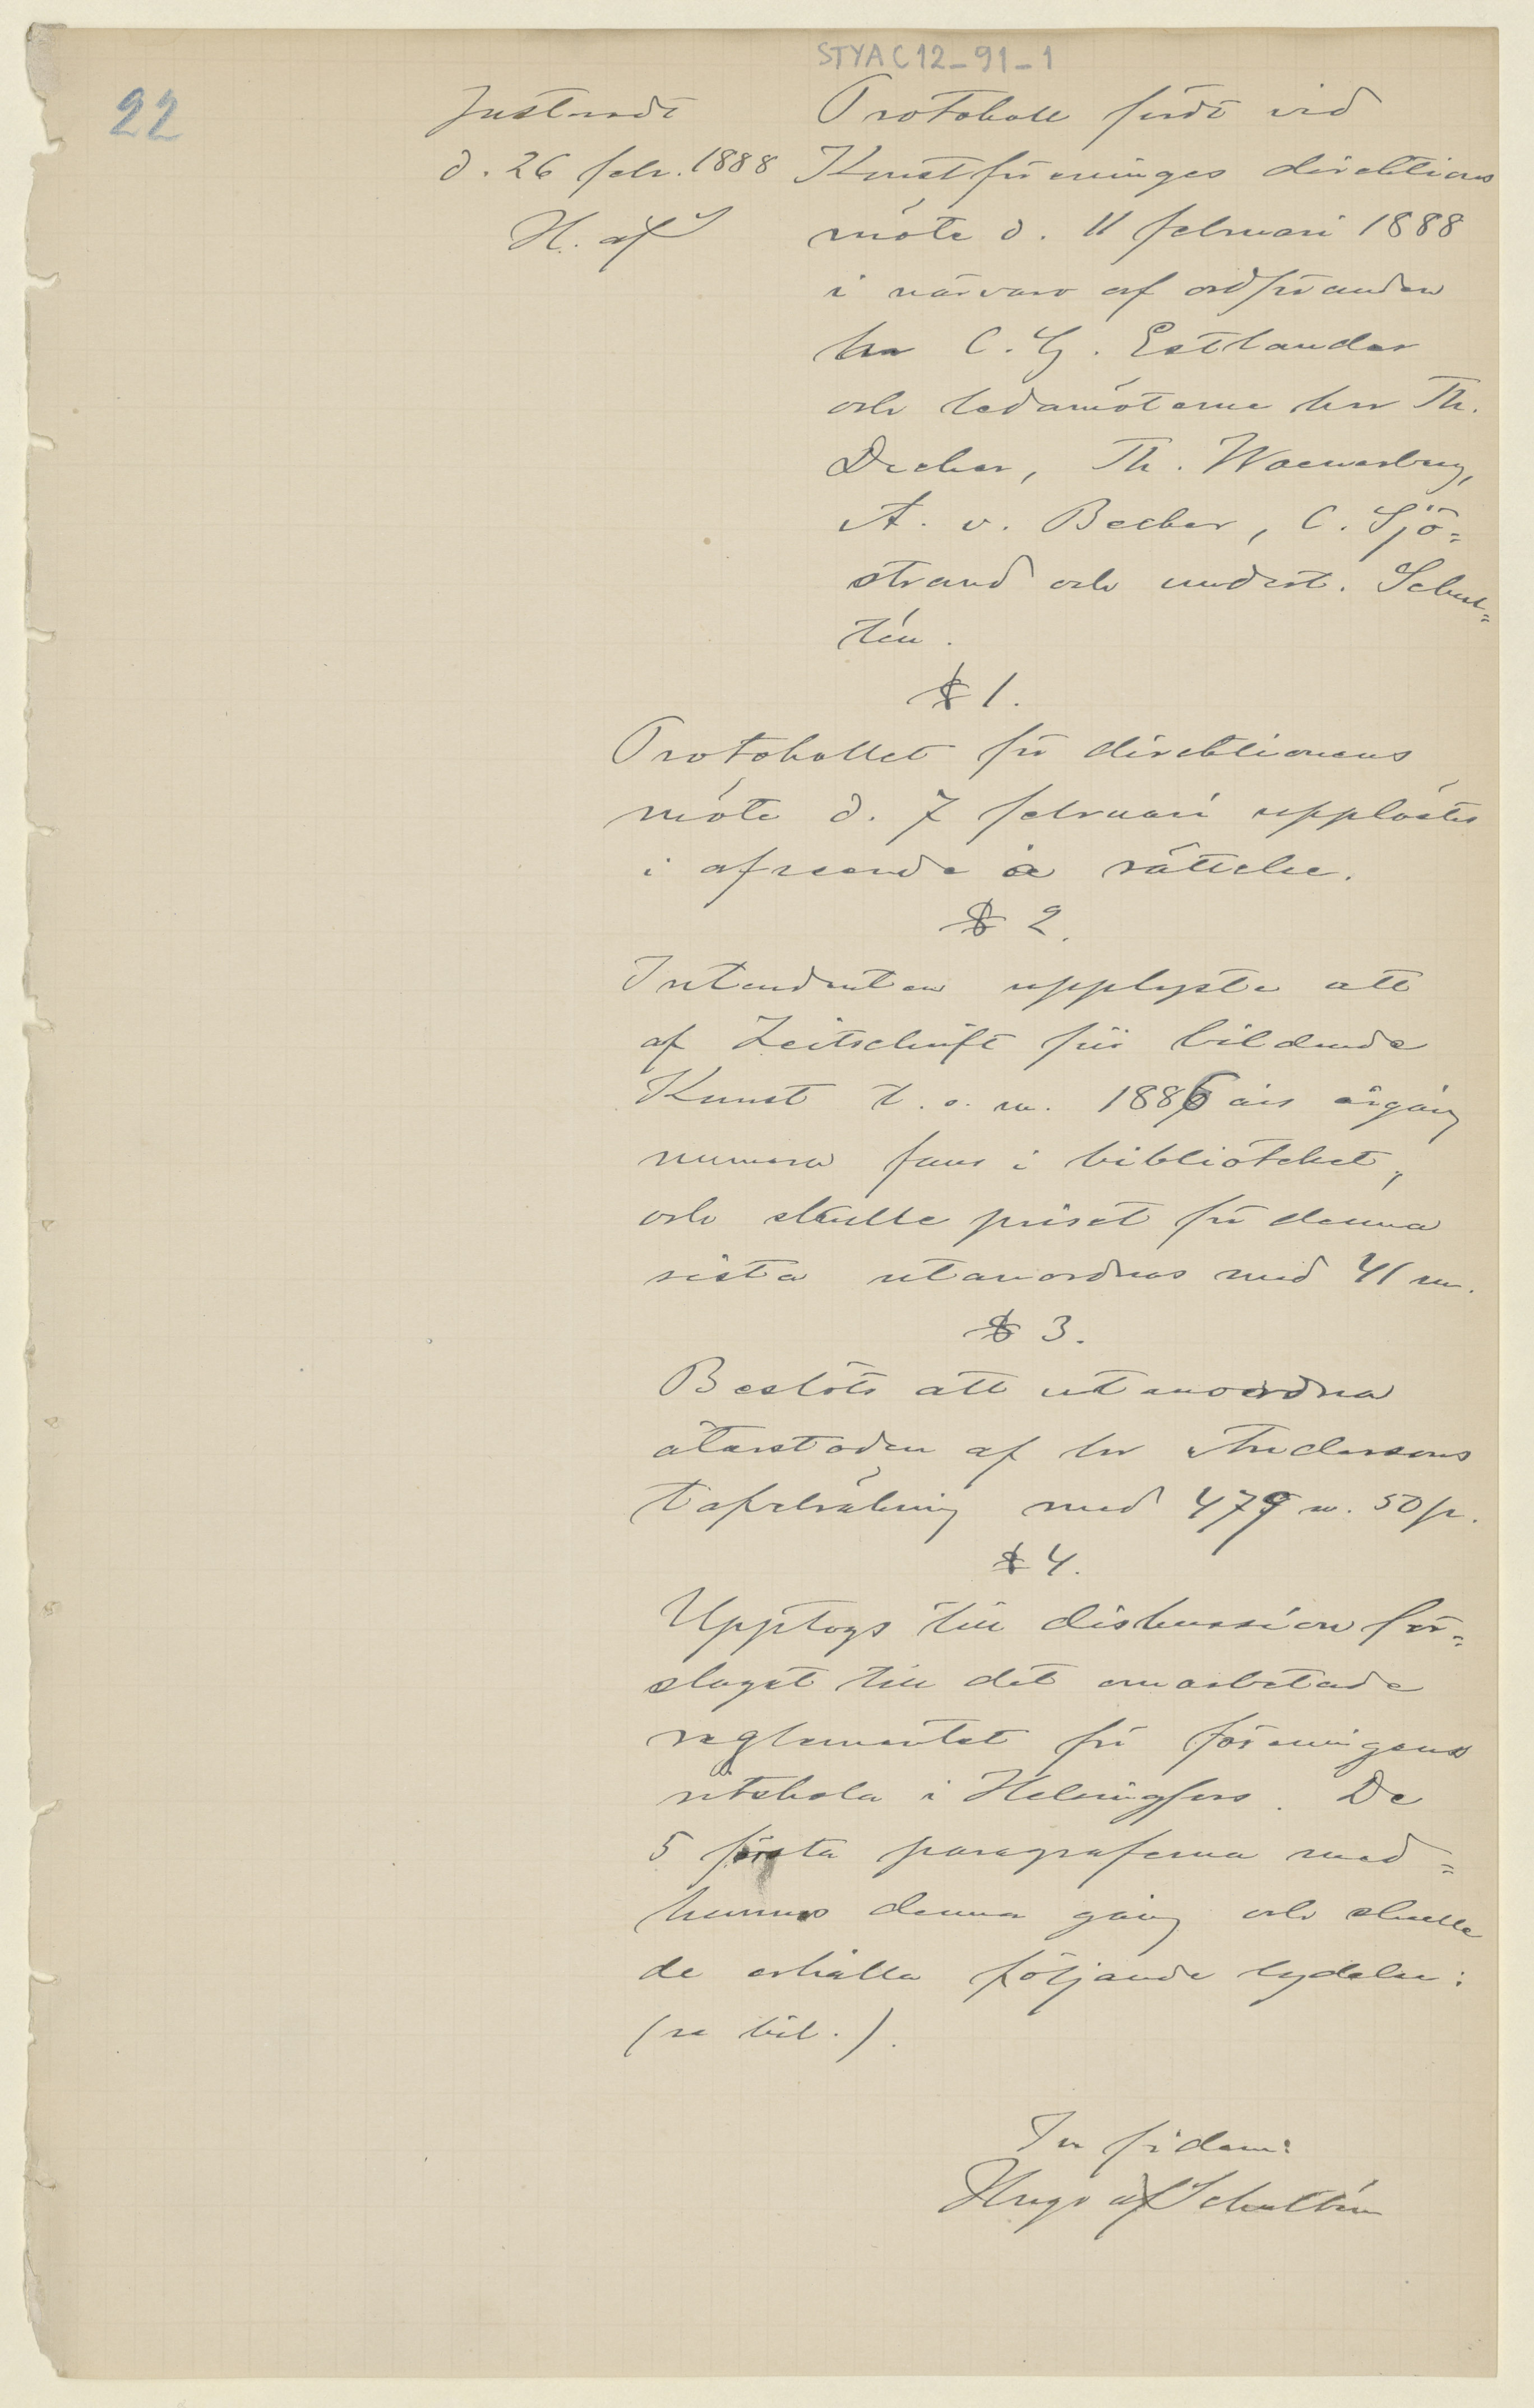 STYA C12-91-1
22
Justeradt
d. 26 febr. 1888
H. af S
Protokoll fördt vid
Konstföreninges direktions
möte d. 11 februari 1888
i närvaro af ordföranden
hr C. G. Estlander
och ledamöterne hrr Th.
Decker, Th. Waenerberg,
A. v. Becker, C. Sjö=
strand och undert. Schul=
tén.
§ 1.
Protokollet för direktionens
möte d. 7 februari upplästes
i afseende å rättelse.
§ 2.
Intendenten upplyste att
af Zeitschrift für bildende
Kunst t. o. m. 1886 års årgång
numera fans i biblioteket,
och skulle priset för denna
sista utanordnas med 41 m.
§ 3.
Beslöts att utanordna
återstoden af hr Andersons
tafvelräkning med 479 m. 50 p.
§ 4.
Upptogs till diskussion för=
slaget till det omarbetade
reglementet för föreningens
ritskola i Helsingfors. De
5 första paragraferna med=
hunnos denna gång och skulle
de erhålla följande lydelse:
(se bil.).
In fidem:
Hugo af Schultén